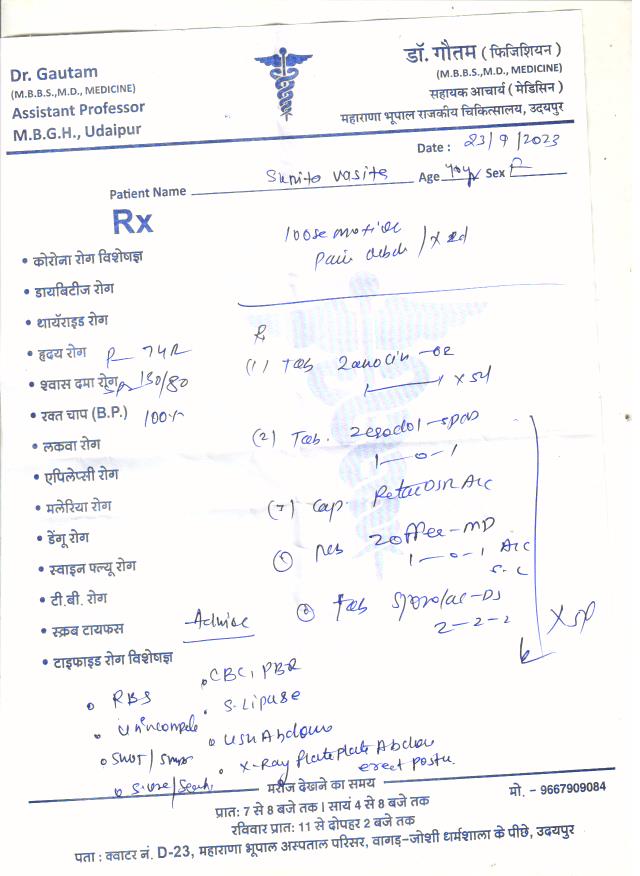 Dr. Gautam
(M.B.B.S.,M.D., MEDICINE)
Assistant Professor
M.B.G.H., Udaipur
डॉ. गौतम ( फिजिशियन )
(M.B.B.S.,M.D., MEDICINE)
सहायक आचार्य ( मेडिसिन )
महाराणा भूपाल राजकीय चिकित्सालय, उदयपुर
Date : 23/9/2023
Patient Name Age 40y Sex F
Rx
loose motion
Pain abdo
• कोरोना रोग विशेषज्ञ
• डायबिटीज रोग
• थायॅराइड रोग
• हृदय रोग
• श्वास दमा रोग 130/80
• रक्त चाप (B.P.) 100%
• लकवा रोग
• एपिलेप्सी रोग
• मलेरिया रोग
• डेंगू रोग
• स्वाइन फ्ल्यू रोग
• टी.बी. रोग
• स्क्रब टायफस
• टाइफाइड रोग विशेषज्ञ
(1) Tab Zanocin-OZ
1 — 1 x 5d
(2) Tab. Zerodol-spas
1 — 0 — 1
Cap.
MD
1 — 0 — 1
Tab Sporolac-DS
2 - 2 - 2
x 5d
Advise
• CBC, PBF
• RBS
• S. Lipase
• Urine complete
• USG Abdomen
• SGOT / SGPT
• X-Ray Abdomen
erect
मरीज देखने का समय
प्रात: 7 से 8 बजे तक । सायं 4 से 8 बजे तक
रविवार प्रात: 11 से दोपहर 2 बजे तक
मो. - 9667909084
पता : क्वाटर नं. D-23, महाराणा भूपाल अस्पताल परिसर, वागड़-जोशी धर्मशाला के पीछे, उदयपुर